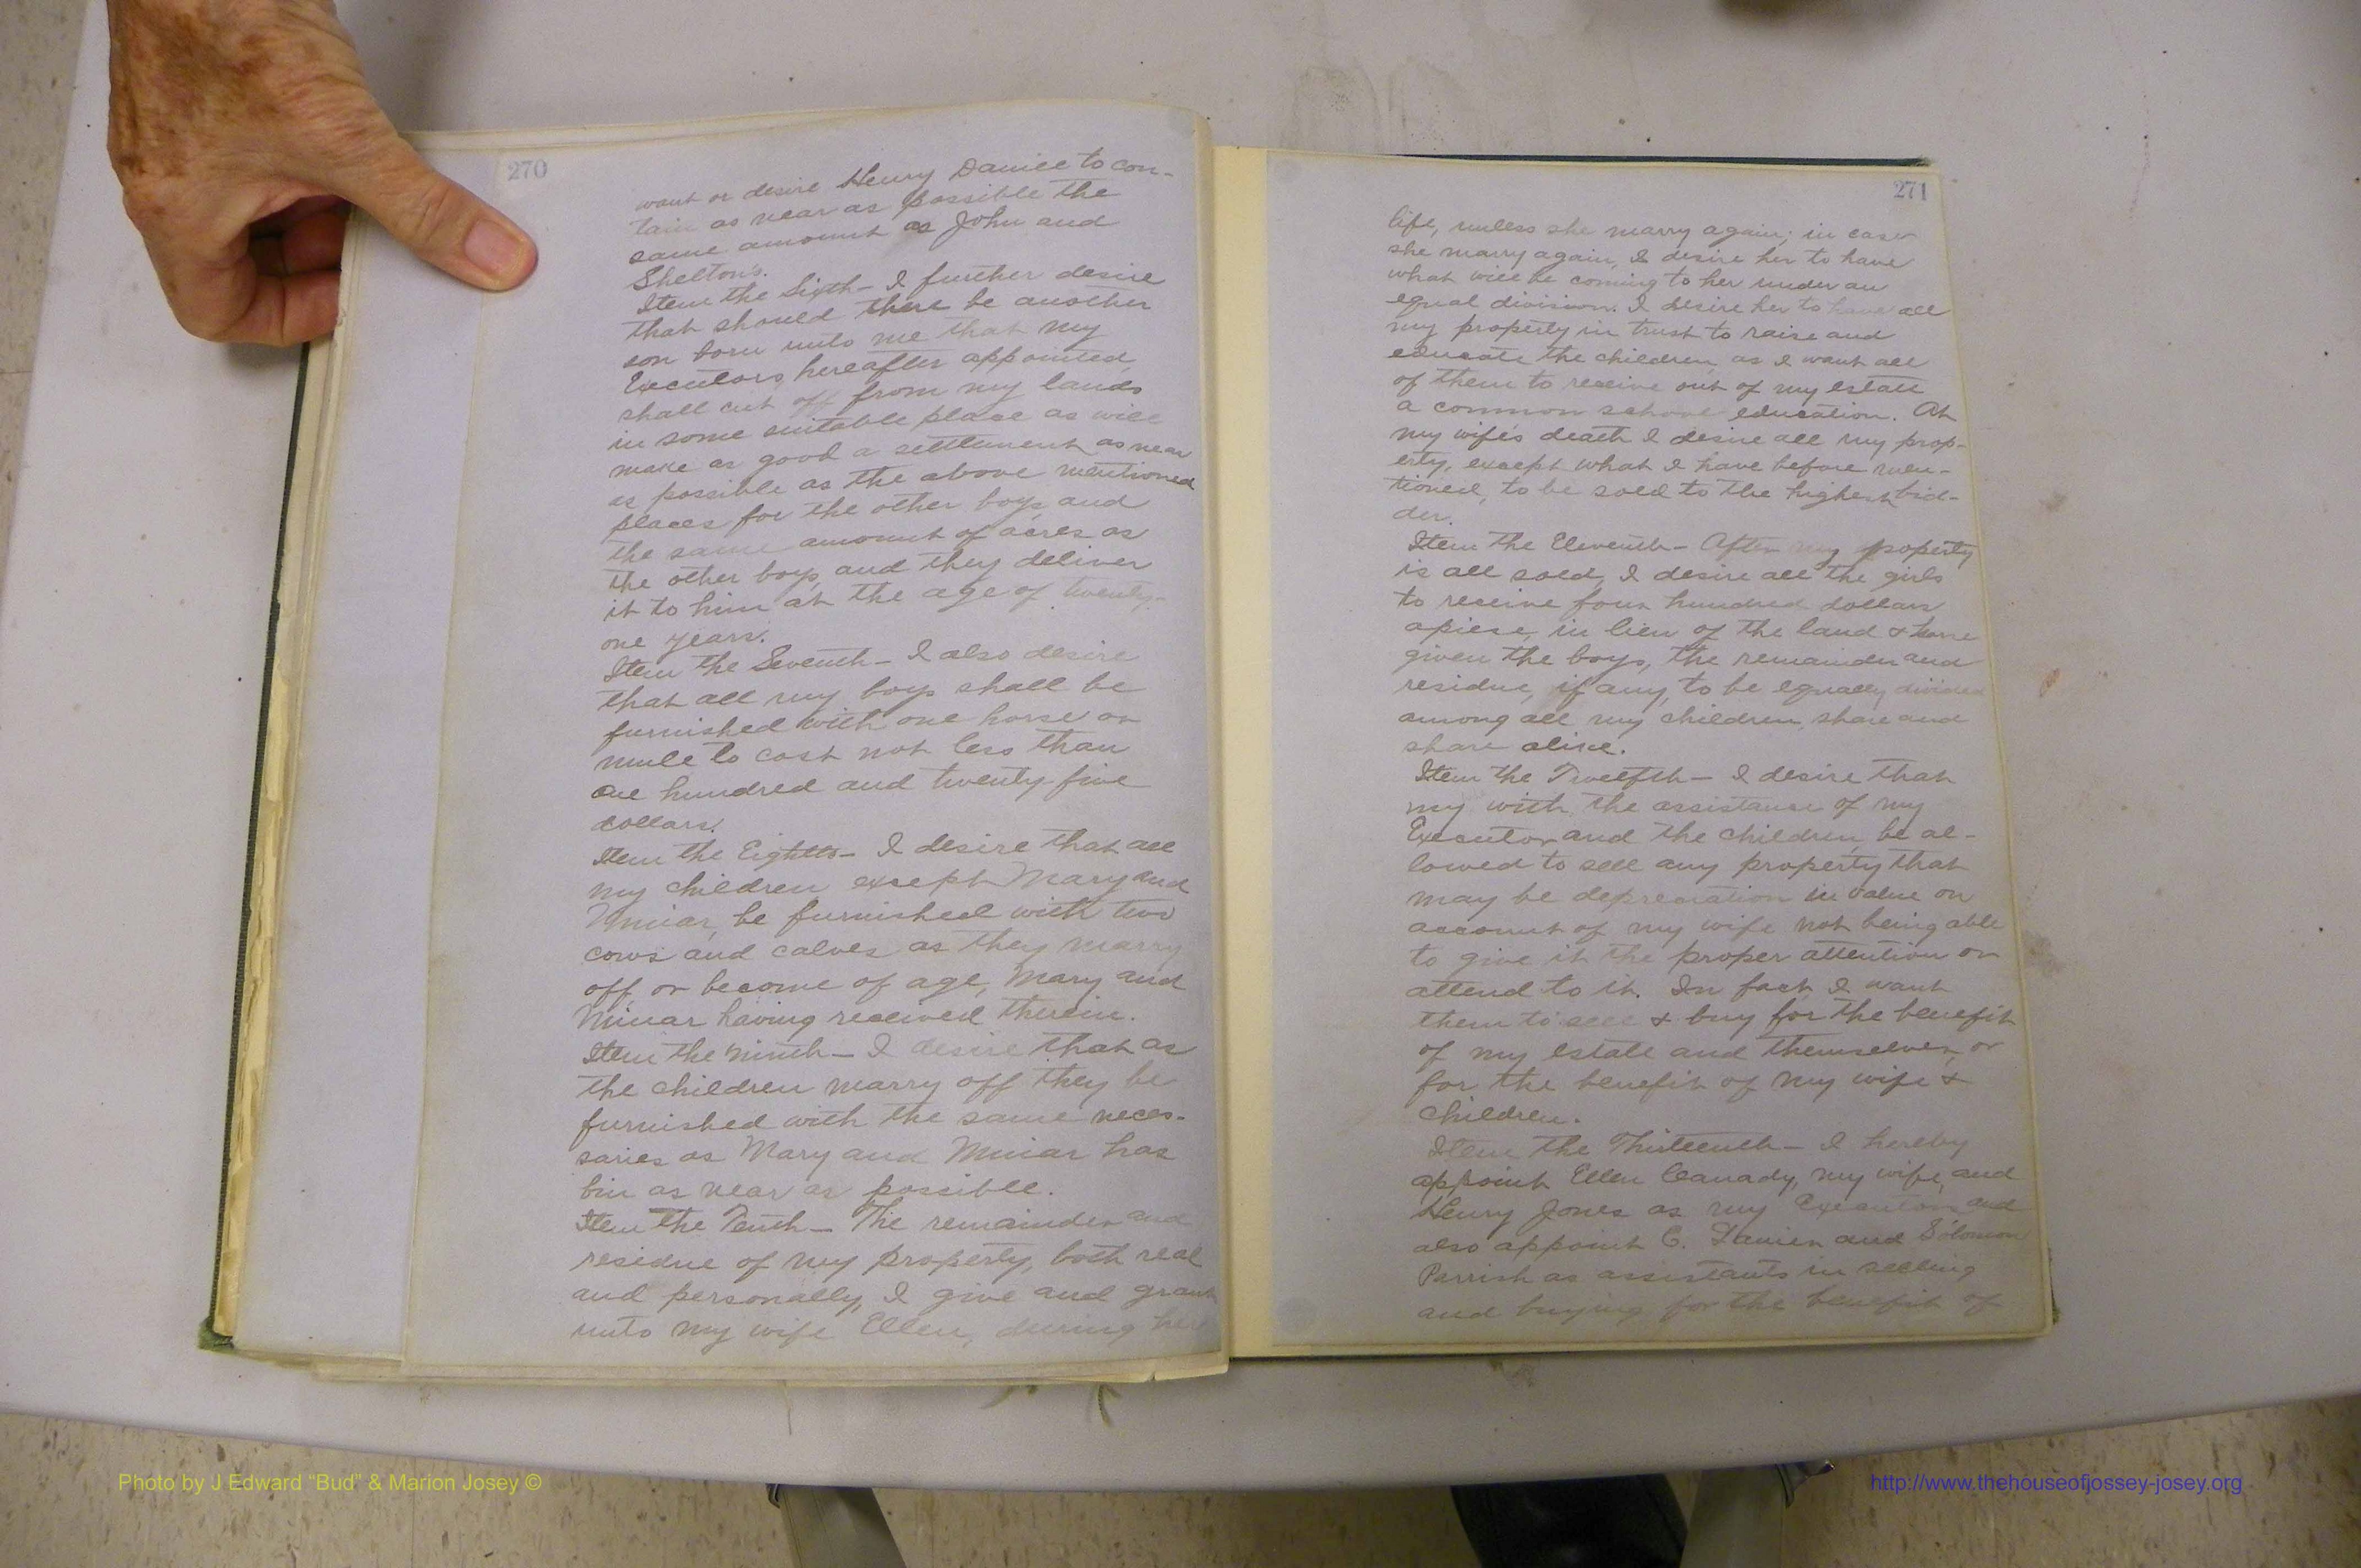 270
want or desire Henry Daniel to con-
tain as near as possible the
same amount as John and
Shelton's.
Item the Sixth - I further desire
that should there be another
son born unto me that my
Executors hereafter appointed
shall cut off from my lands
in some suitable place as will
make as good a settlement as near
as possible as the above mentioned
places for the other boys and
the same amount of acres as
the other boys, and they deliver
it to him at the age of twenty-
one years.
Item the Seventh - I also desire
that all my boys shall be
furnished with one horse or
mule to cost not less than
one hundred and twenty five
dollars.
Item the Eighth - I desire that all
my children except Mary and
be furnished with two
cows and calves as they marry
off or become of age, Mary and
having received therein.
Item the ninth - I desire that as
the children marry off they be
furnished with the same neces-
saries as Mary and has
bin as near as possible.
Item the Tenth - The remainder and
residue of my property, both real
and personally, I give and grant
unto my wife Ellen, during her
271
life, unless she marry again; in case
she marry again, I desire her to have
what will be coming to her under an
equal division. I desire her to have all
my property in trust to raise and
educate the children, as I want all
of them to receive out of my estate
a common school education. At
my wife's death I desire all my prop-
erty, except what I have before men-
tioned, to be sold to the highest bid-
der.
Item the Eleventh - After my property
is all sold, I desire all the girls
to receive four hundred dollars
apiece, in lieu of the land & horse
given the boys, the remainder and
residue, if any, to be equally divided
among all my children, share and
share alike.
Item the Twelfth - I desire that
my with the assistance of my
Executor and the children, be al-
lowed to sell any property that
may be depreciation in value on
account of my wife not being able
to give it the proper attention or
attend to it. In fact, I want
them to sell & buy for the benefit
of my estate and themselves, or
for the benefit of my wife &
children.
Item the Thirteenth - I hereby
appoint Ellen Canady, my wife, and
Henry Jones as my Executors and
also appoint E. and Solomon
Parrish as assistants in selling
and buying for the benefit of
Photo by J Edward “Bud” & Marion Josey ©
http://www.thehouseofjossey-josey.org